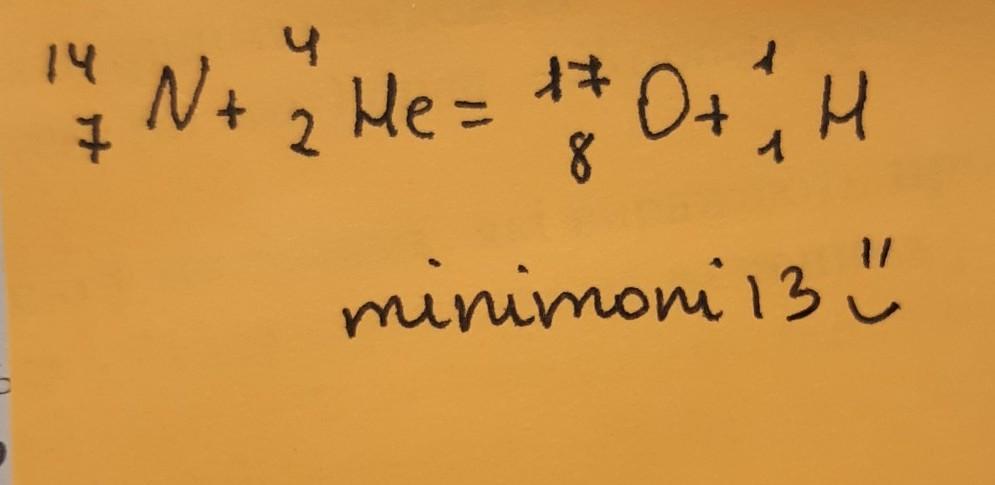 ¹⁴₇N + ⁴₂He = ¹⁷₈O + ¹₁H
minimoni 13 ü